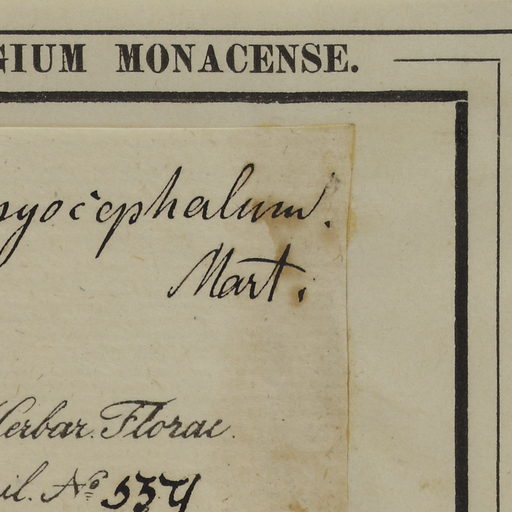 GIUM MONACENSE.
nyocephalum.
Mart.
Herbar. Florae
il. No 537